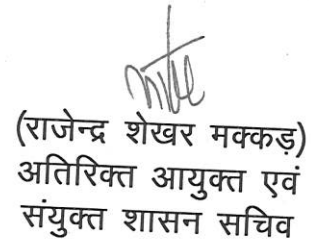 (राजेन्द्र शेखर मक्कड़)
अतिरिक्त आयुक्त एवं
संयुक्त शासन सचिव